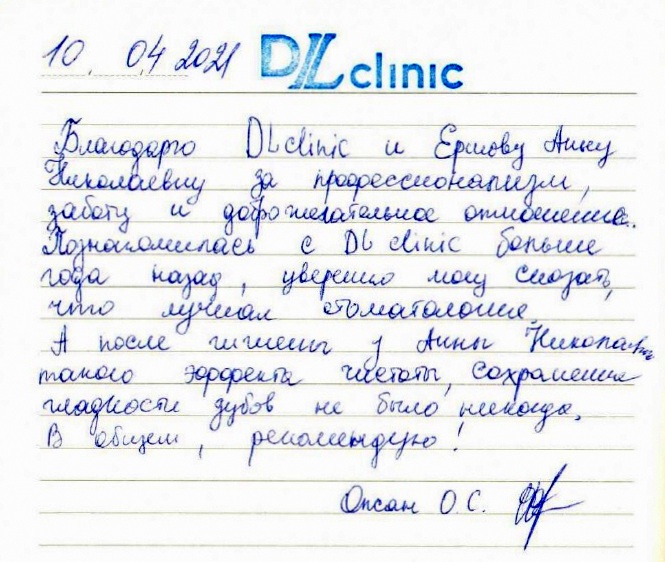 10. 04 2021 DL clinic
Благодарю DLclinic и Ершову Анну
Николаевну за профессионализм,
заботу и доброжелательное отношение.
Познакомилась с DL clinic больше
года назад, уверенно могу сказать,
что лучшая стоматология.
А после гигиены у Анны Николаевны
такого эффекта чистоты, сохранения
гладкости зубов не было никогда.
В общем, рекомендую!
Оксан О С.